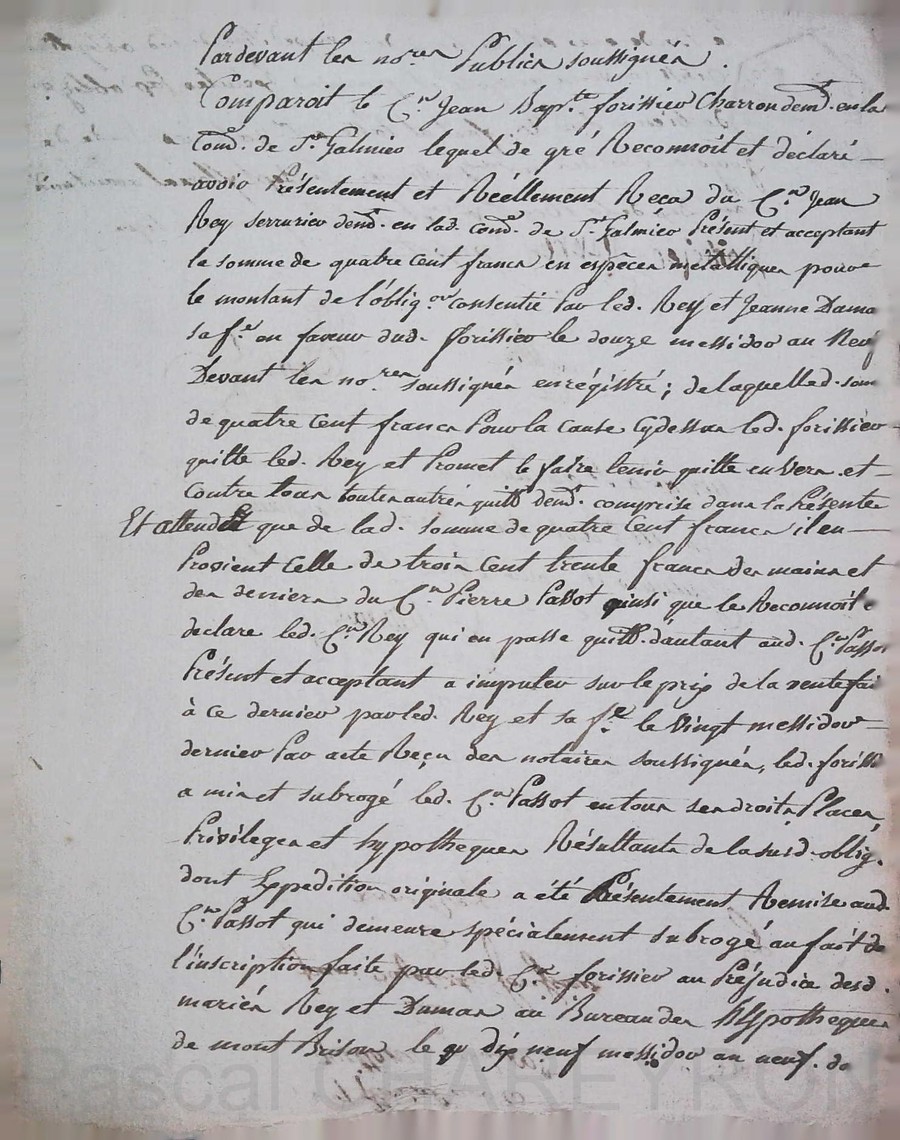 Pardevant les no.res Publics soussignés.
Comparoit le C.n Jean Bap.te forissier Charron dem.t en la
Com.e de S.t Galmier lequel de gré Reconnoit et déclaré
avoir Présentement et Réellement Recu du C.n Jean
Rey serrurier dem.t en lad. com.e de S.t Galmier Présent et acceptant
la somme de quatre Cent francs en espèces métalliques pour
le montant de l'oblig.on consentie Par led. Rey et Jeanne Dama
sa f.e en faveur dud. forissier le douze messidor an Neuf
Devant les no.res soussignés enrégistré; de laquelle d. som
de quatre Cent francs Pour la Cause Cydessus led. forissier
quitte led. Rey et Promet le faire tenir quitte envers et
Contre tous toutes autres quitt. dem.t comprise dans la Présente
Et attendu que de lad. somme de quatre Cent francs il en
Provient Celle de trois Cent trente francs des mains et
des deniers du C.n Pierre Passot ainsi que le Reconnoit e
declare led. C.n Rey qui en passe quitt. d'autant aud. C.n Passot
Présent et acceptant a imputer sur le prix de la vente fai
à Ce dernier par led. Rey et sa f.e le Vingt messidor
dernier Par acte Reçu des notaires soussignés, led. foriss
a mis et subrogé led. C.n Passot en tous ses droits, Places,
Privileges et hypotheques Résultants de la susd. oblig.
dont Expedition originale a été Présentement Remise aud.
C.n Passot qui demeure spécialement subrogé au fait de
l'inscription faite par led. C.n forissier au Préjudice desd.
mariés Rey et Dumas au Bureau des Hypotheques
de mont Brison le dix neuf messidor an neuf. de
Pascal CHAREYRON